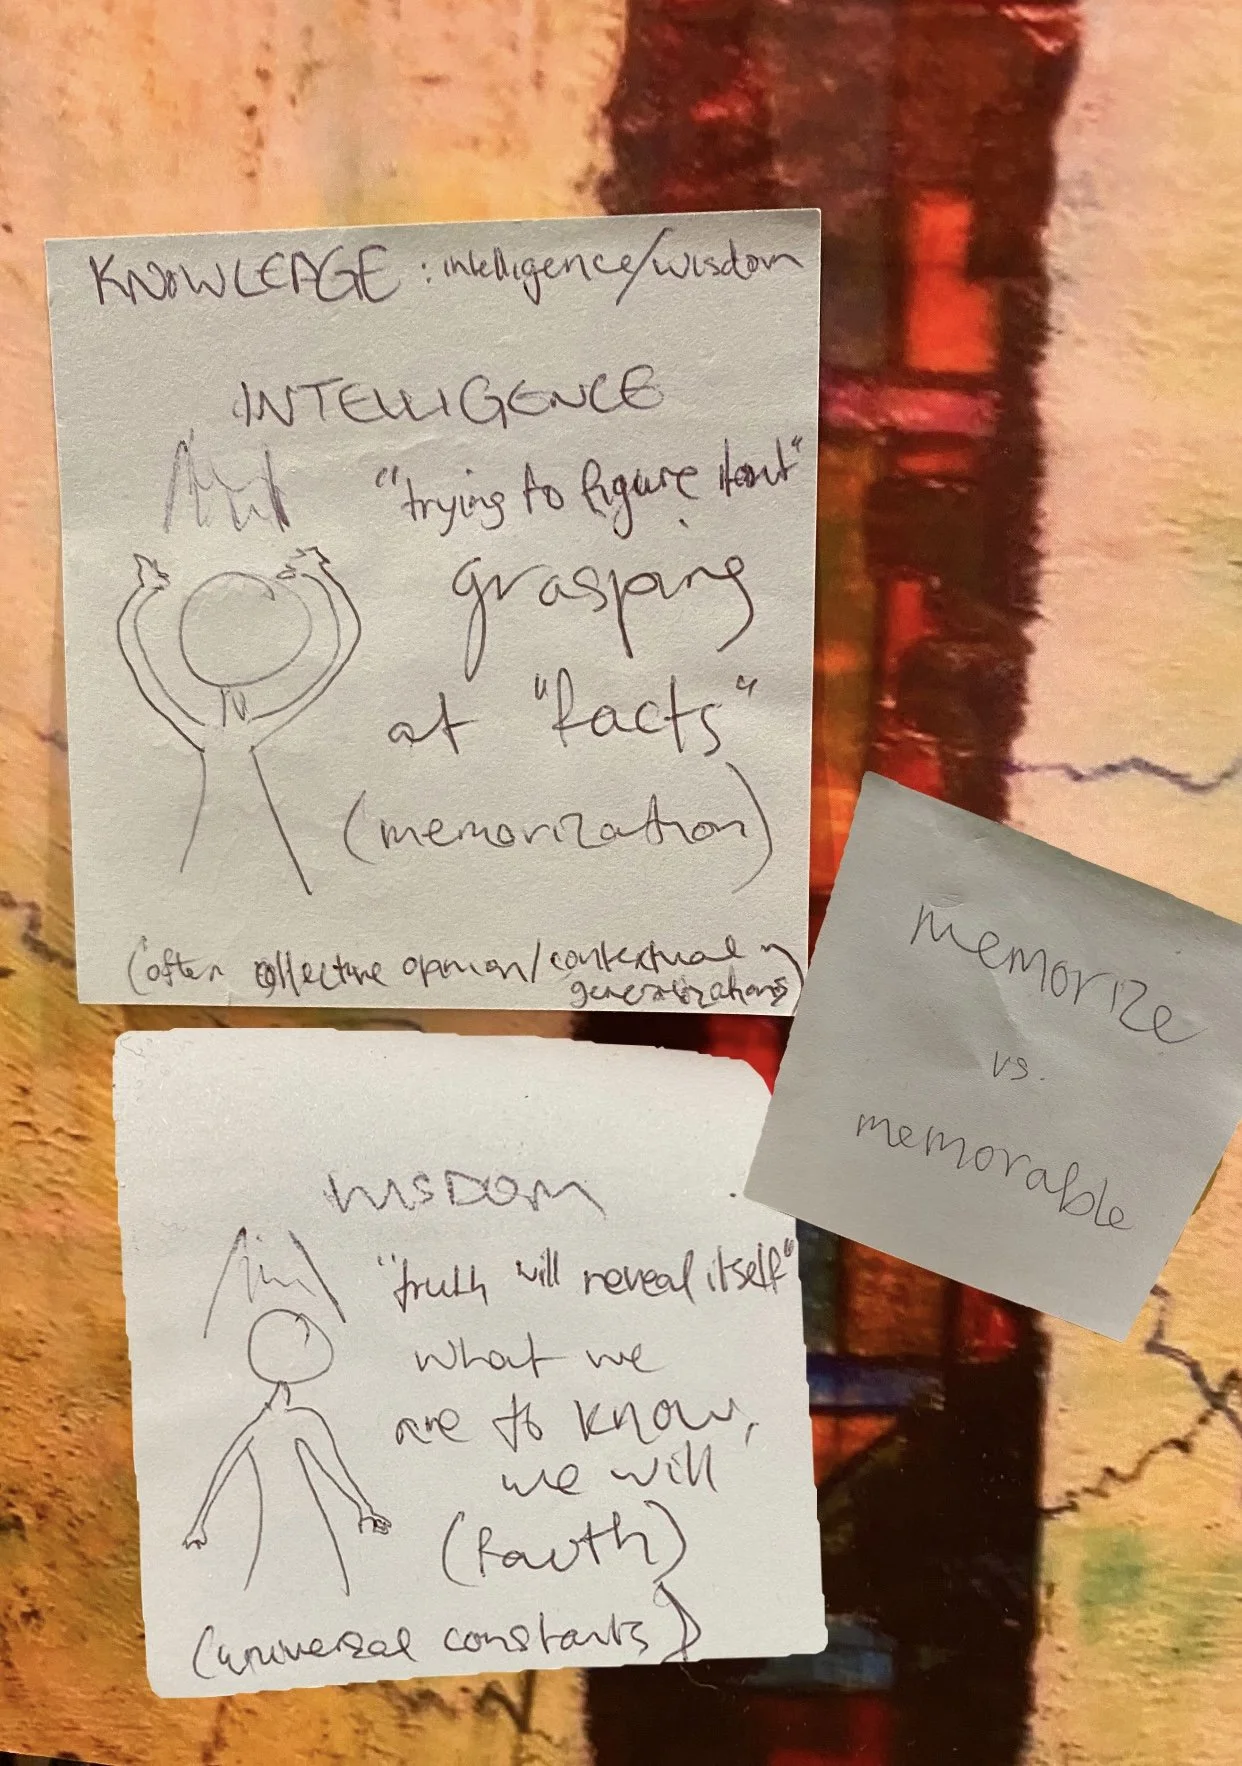 KNOWLEDGE : intelligence/wisdom
INTELLIGENCE
"trying to figure it out"
grasping
at "facts"
(memorization)
(often collective opinion/contextual
generalizations)
memorize
vs.
memorable
WISDOM
"truth will reveal itself"
what we
are to know,
we will
(faith)
(universal constants)